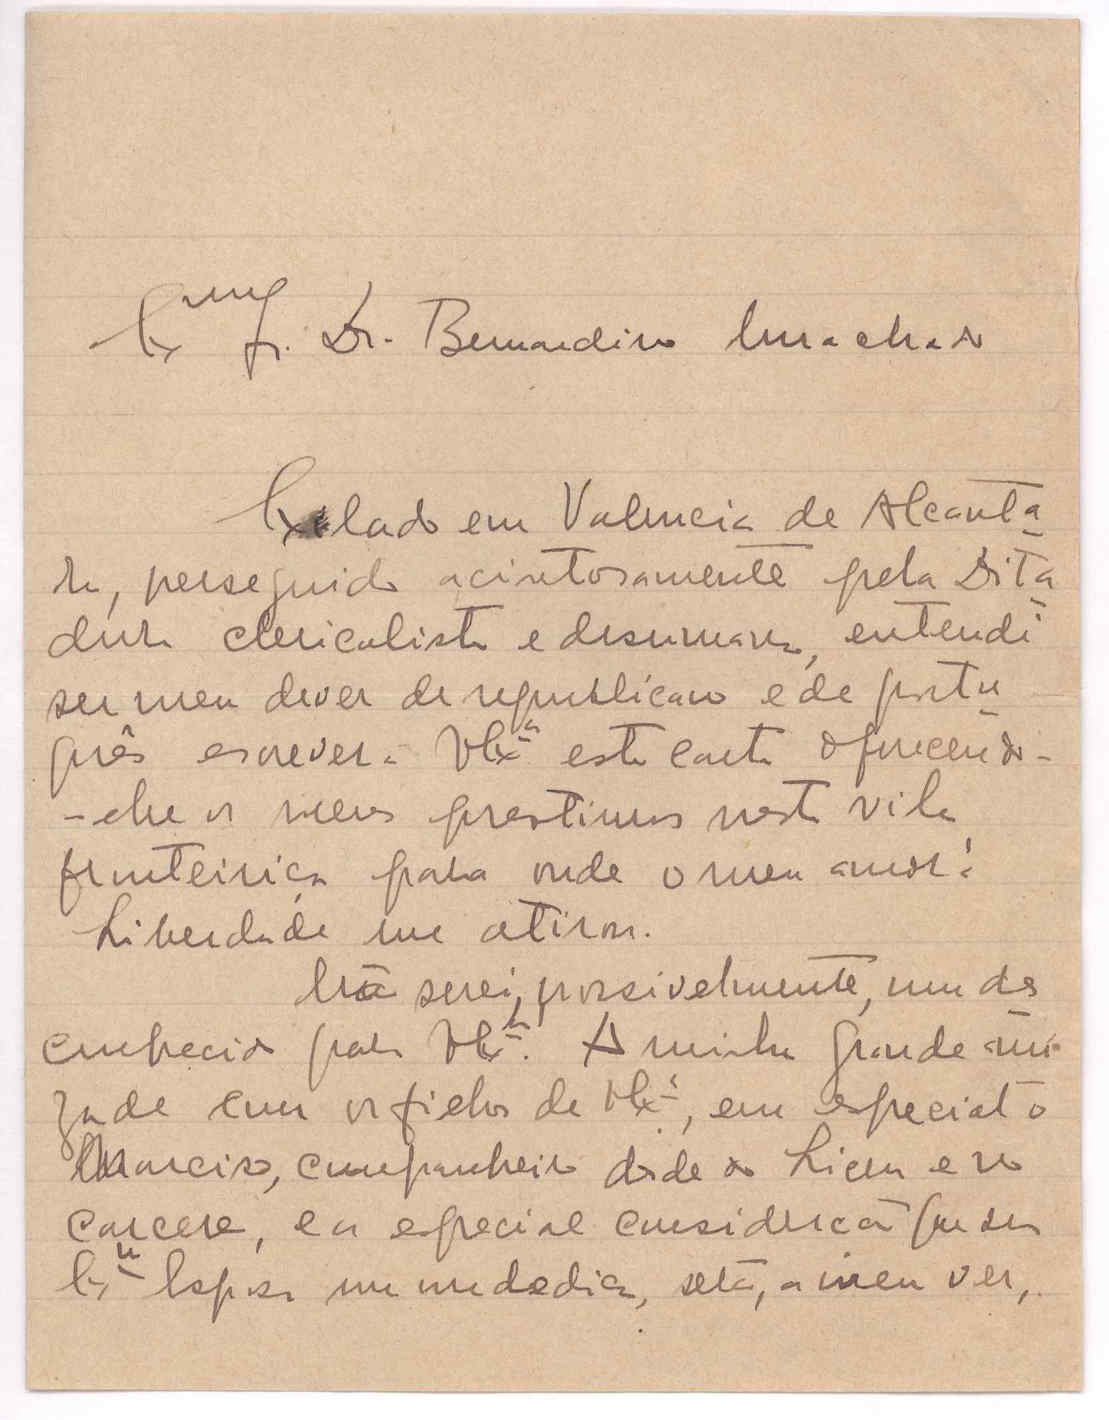 Exmo Sr. Dr. Bernardino Machado
Exilado em Valencia de Alcanta-
ra, perseguido acintosamente pela Dita-
dura clericalista e desumana, entendi
ser meu dever de republicano e de portu-
guês escrever a V.Exa esta carta oferecendo-
-lhe os meus prestimos nesta vila
fronteiriça para onde o meu amor á
Liberdade me atirou.
Não serei, possivelmente, um des-
conhecido para V.Exa. A minha grande ami-
zade com os filhos de V.Exa, em especial o
Narciso, companheiro desde o Liceu e no
carcere, e a especial consideração que sua
Exa Esposa me dedica, será, a meu ver,